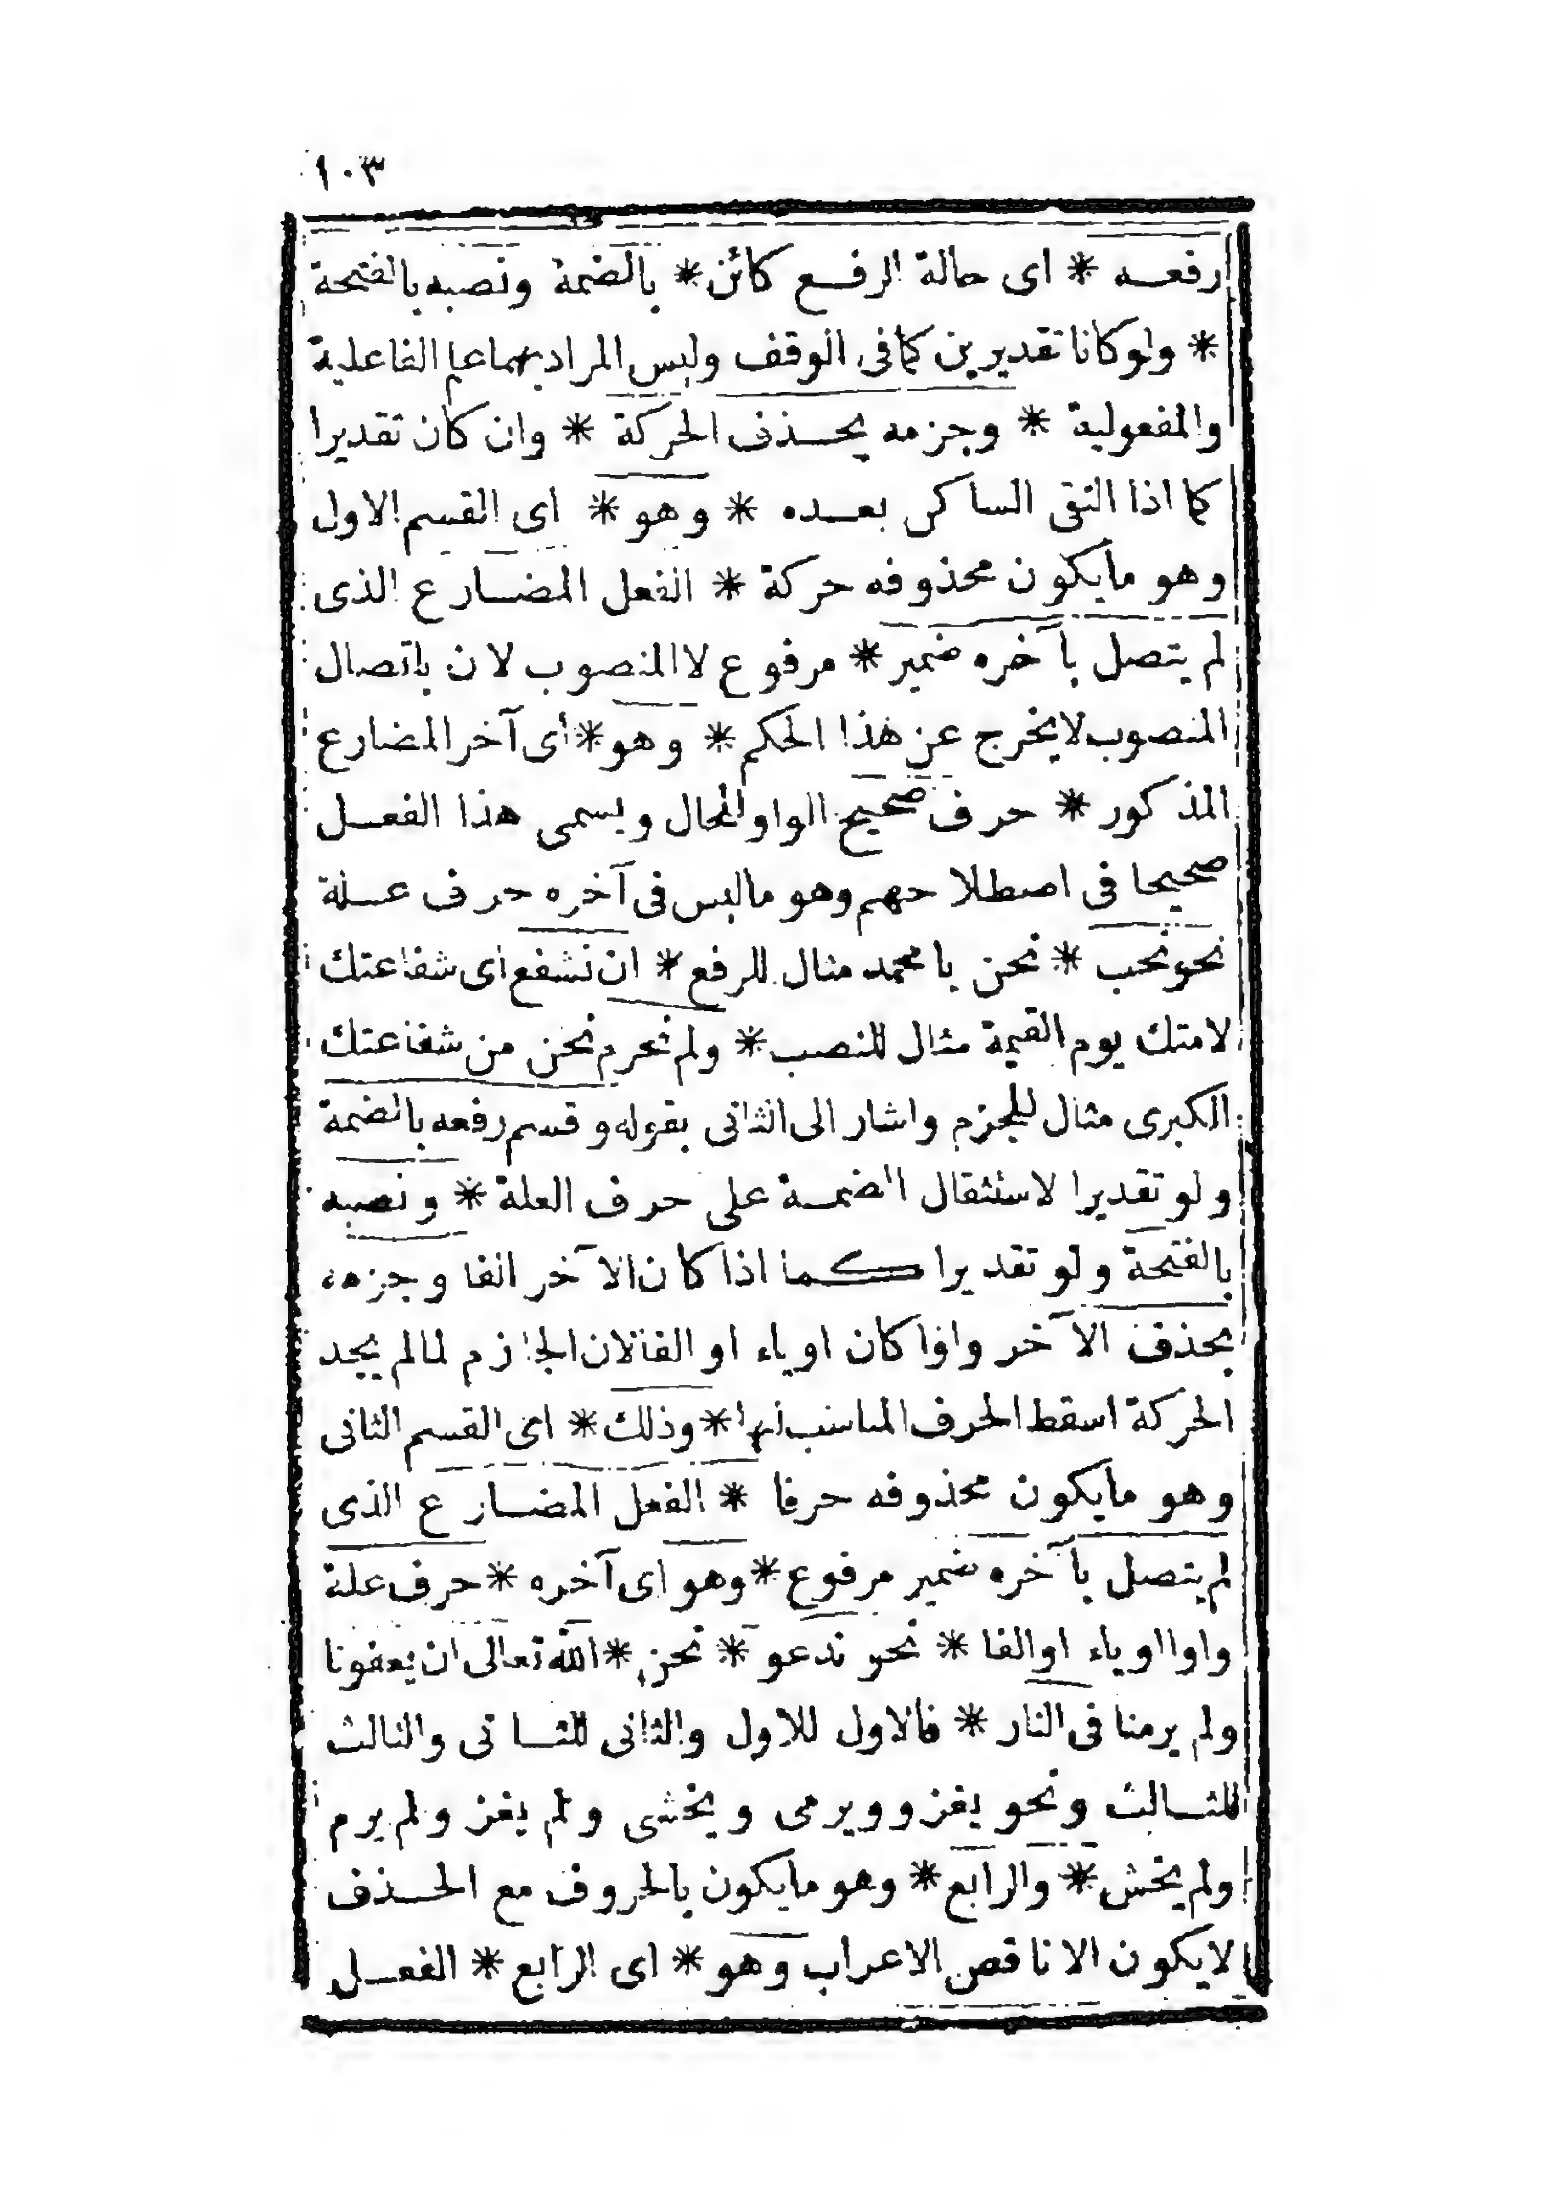 ١٠٣
رفعـه * اى حالة الرفـع كائن * بالضمة ونصبه بالفتحة
* ولو كانا تقديرين كما فى الوقف وليس المراد بهما علم الفاعلية
والمفعولية * وجزمه بحـذف الحركة * وان كان تقديرا
كما اذا التقى الساكن بعـده * وهو * اى القسم الاول
وهو ما يكون محذوفه حركة * الفعل المضـارع الذى
لم يتصل بآخره ضمير * مرفوع لا المنصوب لان باتصال
المنصوب لا يخرج عن هذا الحكم * وهو * اى آخر المضارع
المذكور * حرف صحيح الواو للحال ويسمى هذا الفعـل
صحيحا فى اصطلاحهم وهو ما ليس فى آخره حرف عـلة
نحو نحب * نحن يا محمد مثال للرفع * ان نشفع اى شفاعتك
لامتك يوم القيمة مثال للنصب * ولم نحرم نحن من شفاعتك
الكبرى مثال للجزم واشار الى الثانى بقوله وقسم رفعه بالضمة
ولو تقديرا لاستثقال الضمـة على حرف العلة * ونصبه
بالفتحة ولو تقديرا كـما اذا كان الآخر الفا وجزمه
بحذف الآخر واوا كان او ياء او الفا لان الجازم لما لم يجد
الحركة اسقط الحرف المناسب لها * وذلك * اى القسم الثانى
وهو ما يكون محذوفه حرفا * الفعل المضـارع الذى
لم يتصل بآخره ضمير مرفوع * وهو اى آخره * حرف علة
واوا او ياء او الفا * نحو ندعو * نحن * الله تعالى ان يعفونا
ولم يرمنا فى النار * فالاول للاول والثانى للثـانى والثالث
للثـالث ونحو يغزو ويرمى ويخشى ولم يغز ولم يرم
ولم يخش * والرابع * وهو ما يكون بالحروف مع الحـذف
لا يكون الا ناقص الاعراب وهو * اى الرابع * الفعـل